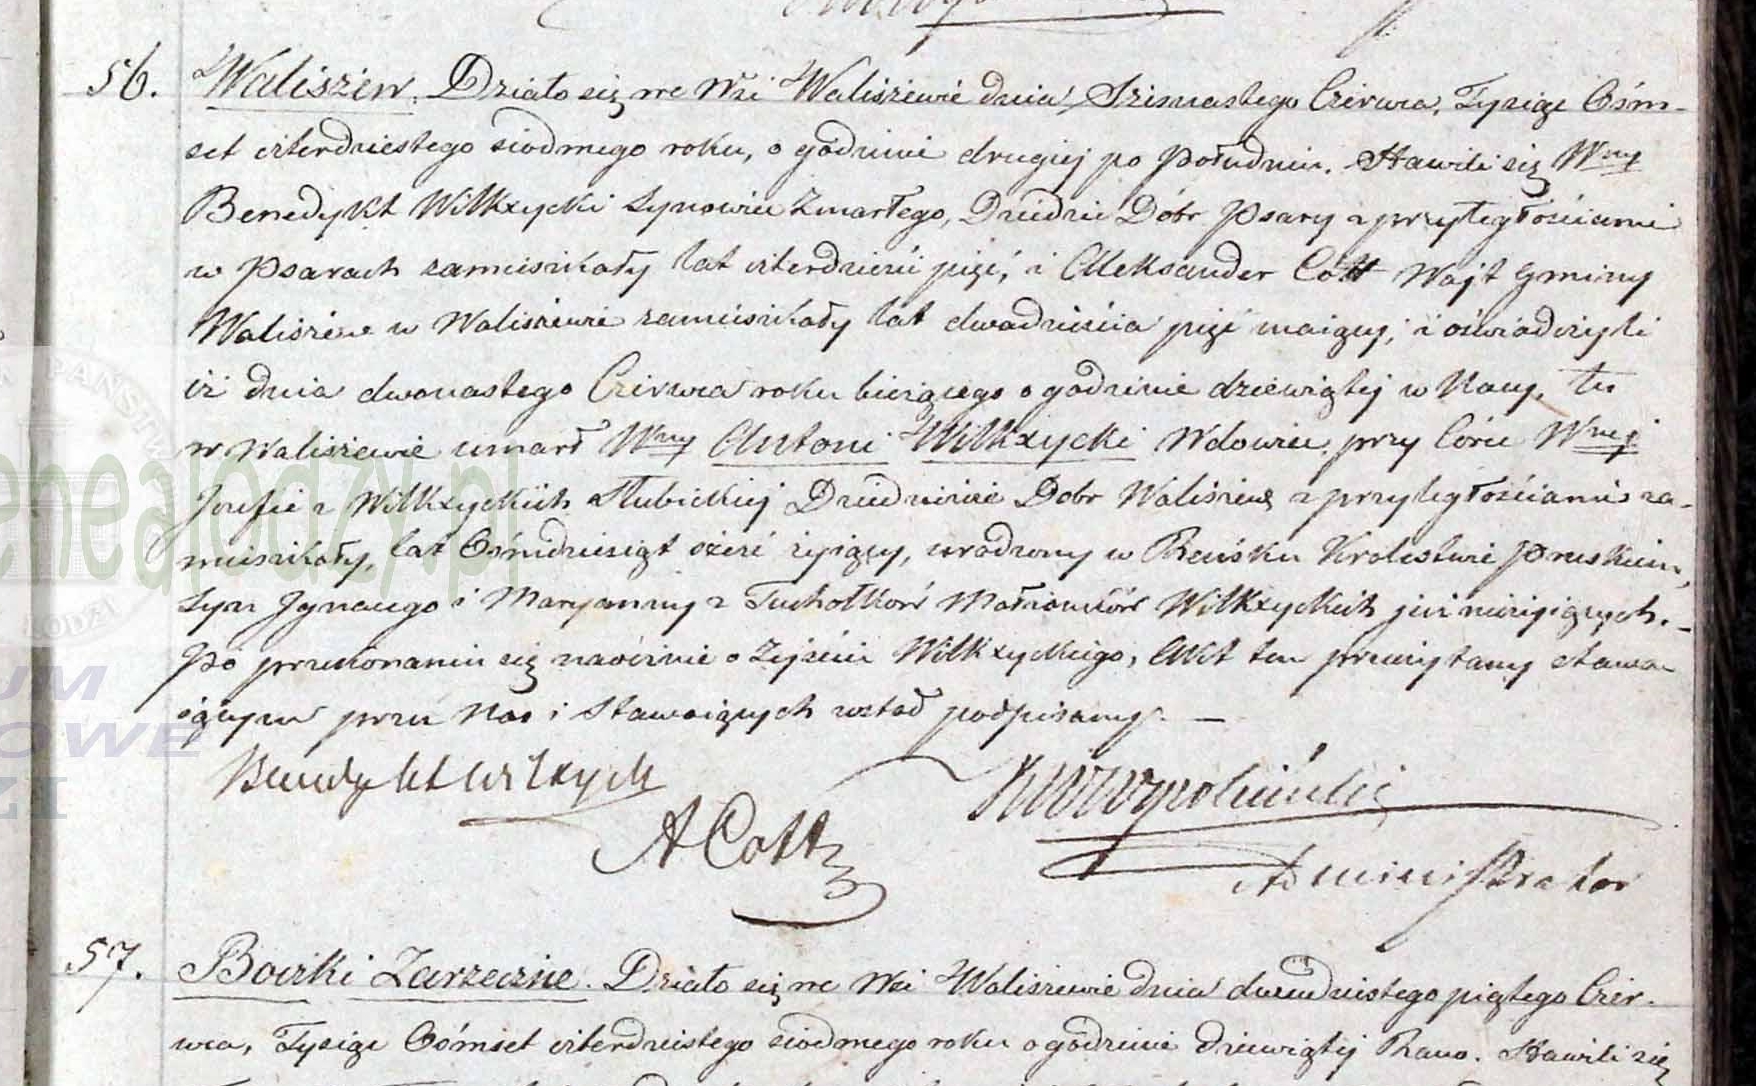 56. Waliszew. Działo się we Wsi Waliszewie dnia Szesnastego Czerwca, Tysiąc Ośm-
set czterdziestego siodmego roku, o godzinie drugiej po Południu. Stawili się Wny
Benedykt Wilkxycki Synowiec Zmarłego, Dziedzic Dóbr Psary z przyległościami
w Psarach zamieszkały lat czterdzieści pięć, i Aleksander Cott Wajt Gminy
Waliszew w Waliszewie zamieszkały lat dwadzieścia pięć maiący, i oświadczyli
iż dnia dwunastego Czerwca roku bieżącego o godzinie dziewiątej w Nocy, tu
w Waliszewie umarł Wny Antoni Wilkxycki Wdowiec przy Córce Wnej
Jozefie z Wilkxyckich Słubickiej Dziedziczce Dobr Waliszew z przyległościami za-
mieszkały, lat Ośmdziesiąt sześć żyiący, urodzony w Królestwie Pruskiem,
Syn Ignacego i Maryanny z Tuchołków Małżonków Wilkxyckich już nieżyiących. –
Po przekonaniu się naocznie o Zejściu Wilkxyckiego, Akt ten przeczytany stawa-
iącym przez Nas i Stawaiących został podpisany. –
Benedykt Wilkxycki
A Cott
Administrator
57. Bocżki Zarzeczne. Działo się we Wsi Waliszewie dnia dwudziestego piątego Czer-
wca, Tysiąc Ośmset czterdziestego siodmego roku o godzinie dziewiątej Rano. Stawili się
PAŃSTW
genealodzy.pl
ŁODZI
UM
OWE
ZI